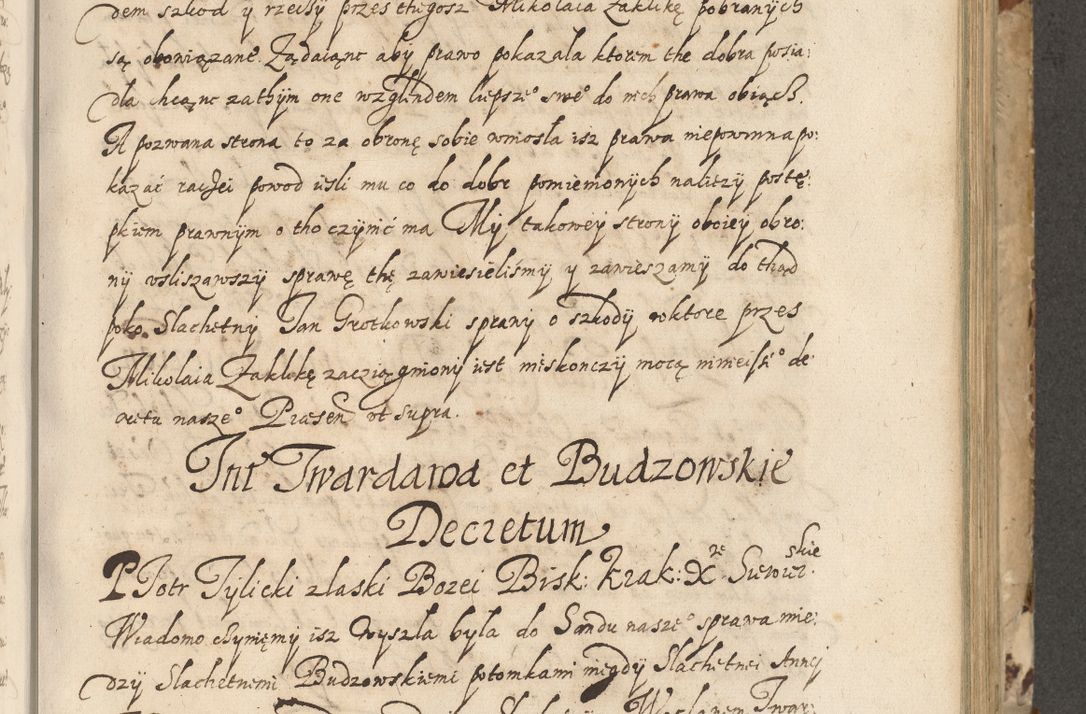 dem szkod y rzeczy przes thugosz Mikolaia Zaklikę pobranych
są obowiązane. Ządaiąnc aby prawo pokazala ktorem the dobra posia:
dla chcąnc zathym one wzglendem liepsze° swe° do nich prawa obiąch.
A pozwana strona to za obronę sobie wniosla isz prawa niepowinna po:
kazać raczei powod iesli mu co do dobr pomienionych nalieży postę:
pkiem prawnym o tho czynić ma My takowey strony oboiey obro:
ny vsliszawszy sprawę thę zawiesieliśmy y zawieszamy do thąd
poko Slachetny Jan Grotkowski sprawy o szkody wktore przes
Mikolaia Zaklikę zacziągniony iest nieskonczy mocą ninieiſzé° de:
cretu nasze° Præsen vt supra.
Int Twardawa et Budzowskie
Decretum
PJotr Tylicki zlaski Bozei Bisk: Krak: X^ze Siewier^skie
Wiadomo czyniemy isz wyszla była do Sandu nasze° sprawa mie:
dzy Slachetnemi Budzowskiemi potomkami niegdy Slachetnei Anny
Waclawem Twar: